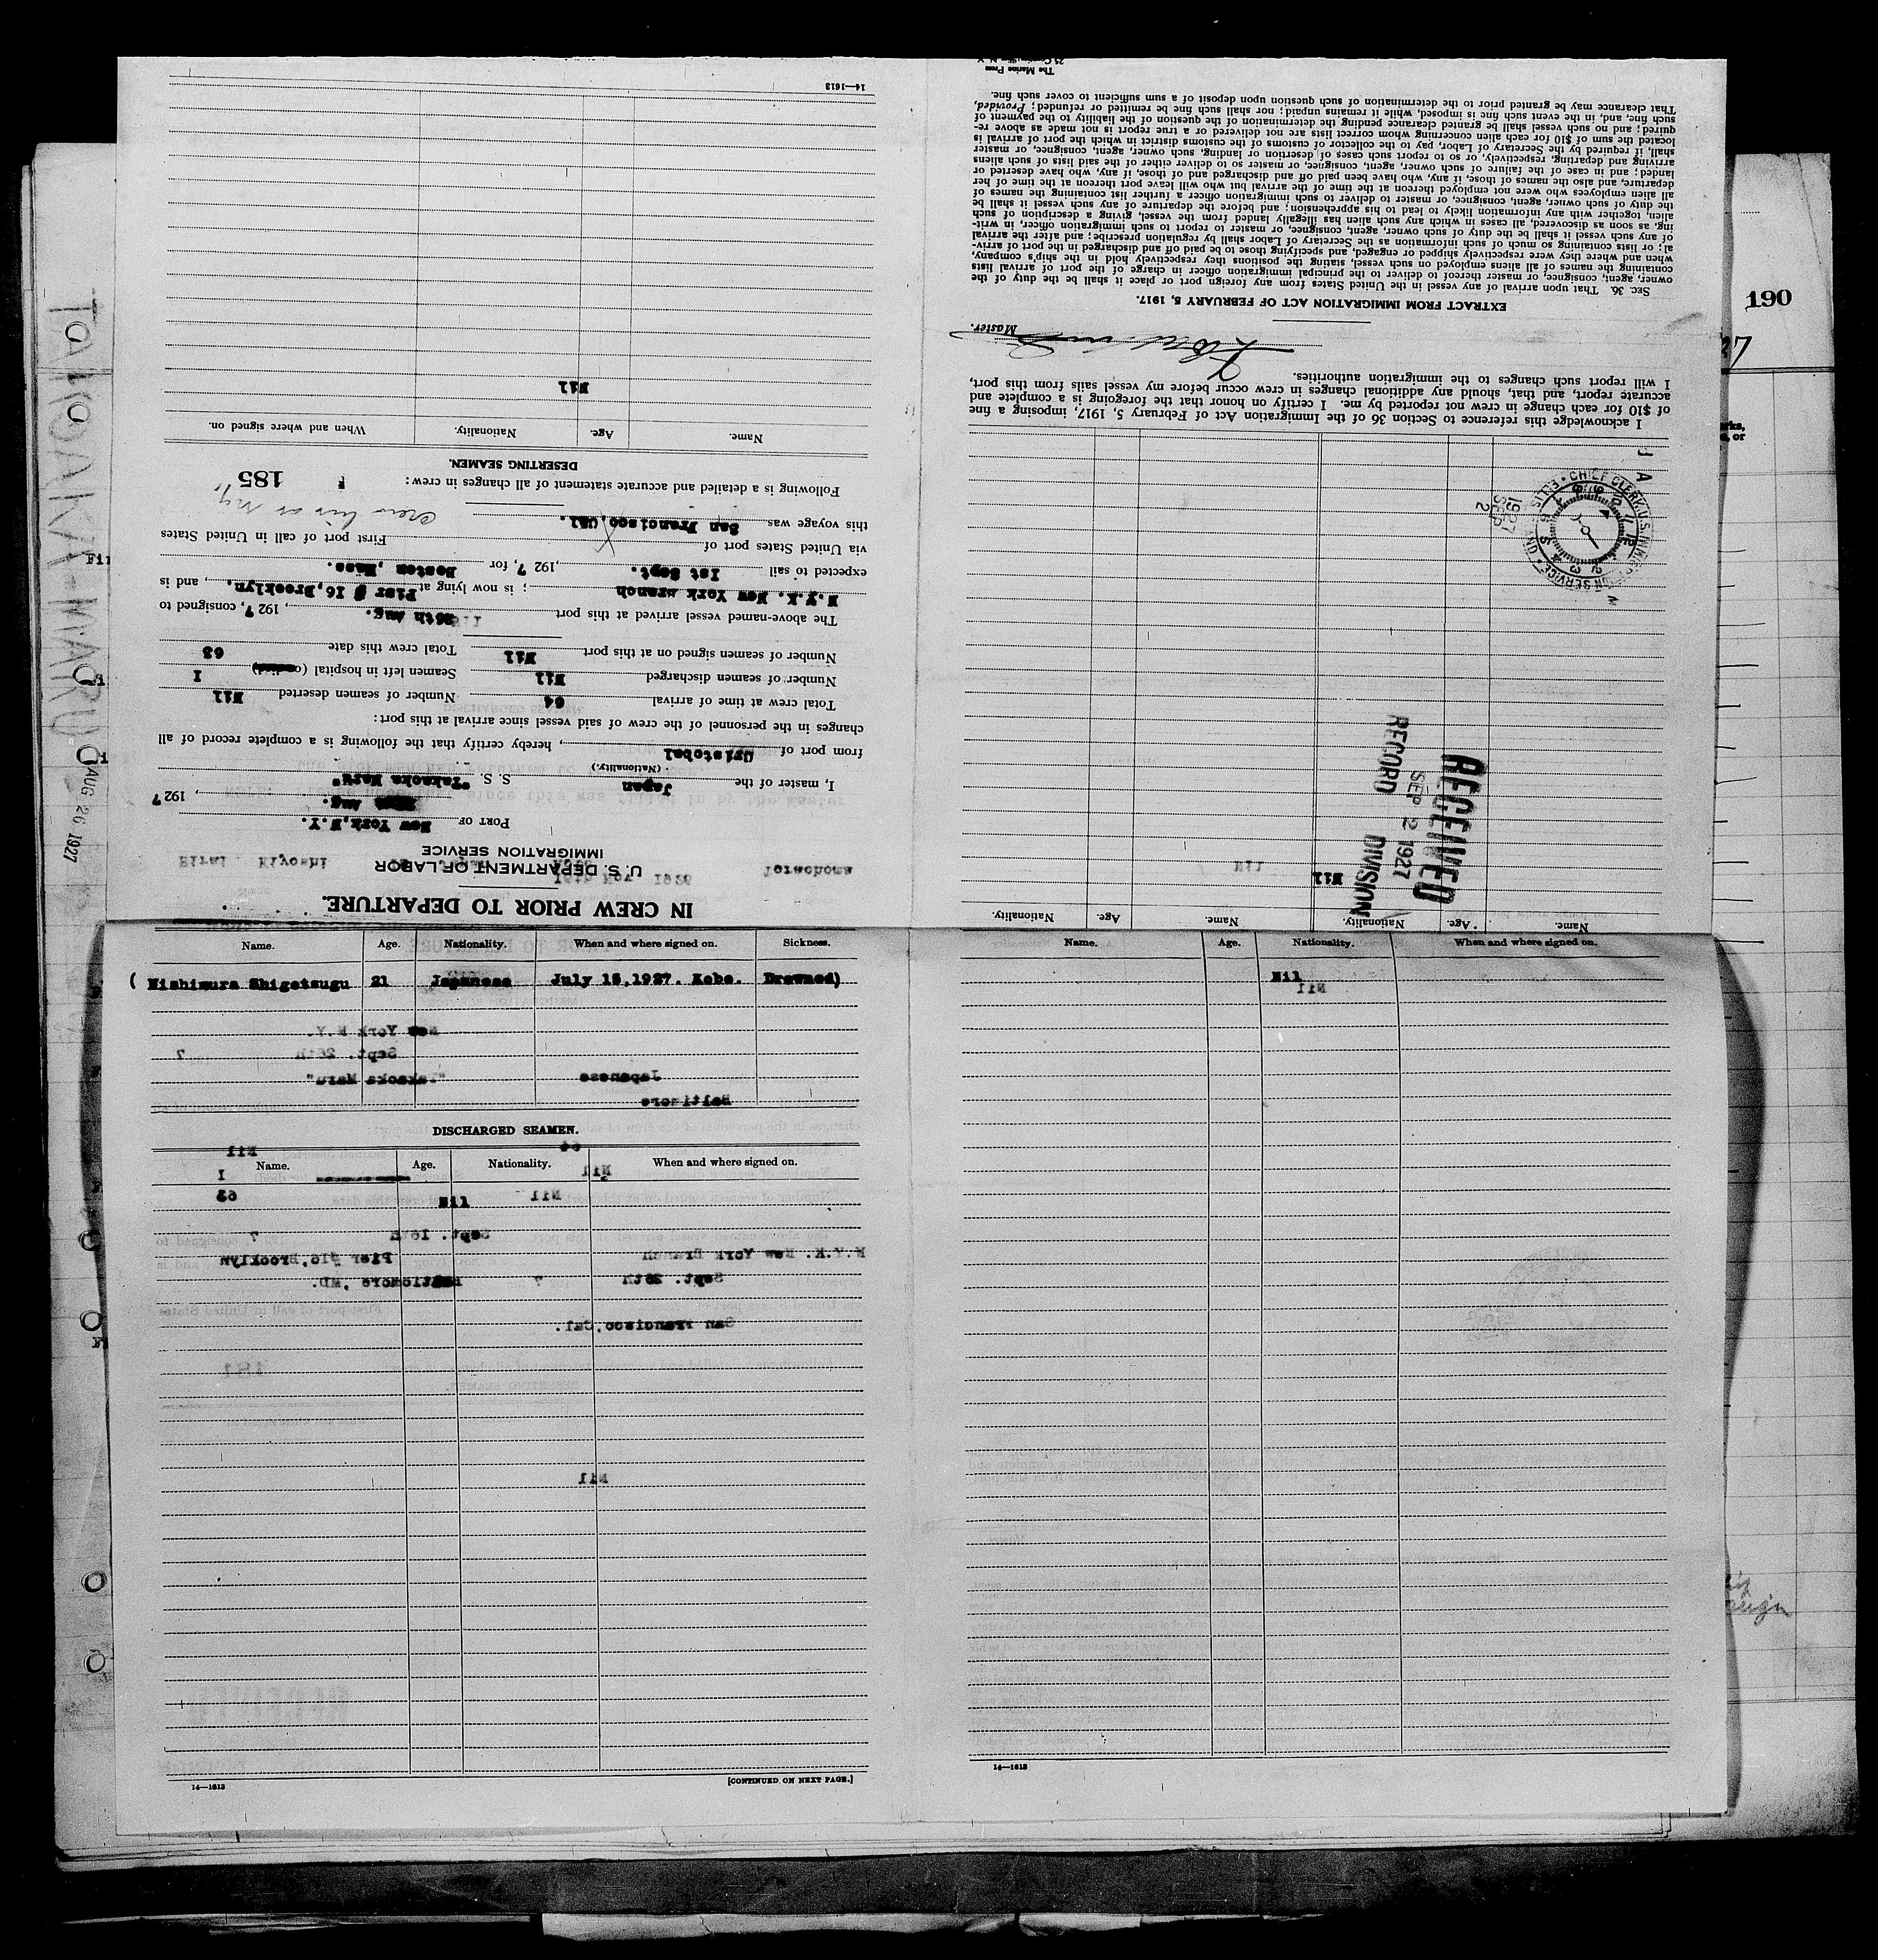 IN CREW PRIOR TO DEPARTURE.
U. S. DEPARTMENT OF LABOR
IMMIGRATION SERVICE
PORT OF New York, N.Y.
Aug. , 1927
I, master of the Japan S. S. "Takaoka Maru"
(Nationality.)
from port of Cristobal, hereby certify that the following is a complete record of all
changes in the personnel of the crew of said vessel since arrival at this port:
Total crew at time of arrival 64 Number of seamen deserted Nil
Number of seamen discharged Nil Seamen left in hospital ( ) I
Number of seamen signed on at this port Nil Total crew this date 63
The above-named vessel arrived at this port 26th Aug., 1927, consigned to
N.Y.K. New York Branch ; is now lying at Pier # 16, Brooklyn, and is
expected to sail 1st Sept., 1927, for Boston, Mass.
via United States port of First port of call in United States
this voyage was San Francisco, Cal.
Following is a detailed and accurate statement of all changes in crew: 185
DESERTING SEAMEN.
Name. Age. Nationality. When and where signed on.
Nil
14—1613
Name. Age. Nationality. Name. Age. Nationality.
Nil
RECEIVED
SEP 2 1927
RECORD DIVISION
CHIEF CLERK, U.S. IMMIGRATION SERVICE · ELLIS
1927
SEP
2
I acknowledge this reference to Section 36 of the Immigration Act of February 5, 1917, imposing a fine
of $10 for each change in crew not reported by me. I certify on honor that the foregoing is a complete and
accurate report, and that, should any additional changes in crew occur before my vessel sails from this port,
I will report such changes to the immigration authorities.
Master.
EXTRACT FROM IMMIGRATION ACT OF FEBRUARY 5, 1917.
SEC. 36. That upon arrival of any vessel in the United States from any foreign port or place it shall be the duty of the
owner, agent, consignee, or master thereof to deliver to the principal immigration officer in charge of the port of arrival lists
containing the names of all aliens employed on such vessel, stating the positions they respectively hold in the ship's company,
when and where they were respectively shipped or engaged, and specifying those to be paid off and discharged in the port of arriv-
al; or lists containing so much of such information as the Secretary of Labor shall by regulation prescribe; and after the arrival
of any such vessel it shall be the duty of such owner, agent, consignee, or master to report to such immigration officer, in writ-
ing, as soon as discovered, all cases in which any such alien has illegally landed from the vessel, giving a description of such
alien, together with any information likely to lead to his apprehension; and before the departure of any such vessel it shall be
the duty of such owner, agent, consignee, or master to deliver to such immigration officer a further list containing the names of
all alien employees who were not employed thereon at the time of the arrival but who will leave port thereon at the time of her
departure, and also the names of those, if any, who have been paid off and discharged and of those, if any, who have deserted or
landed; and in case of the failure of such owner, agent, consignee, or master so to deliver either of the said lists of such aliens
arriving and departing, respectively, or so to report such cases of desertion or landing, such owner, agent, consignee, or master
shall, if required by the Secretary of Labor, pay to the collector of customs of the customs district in which the port of arrival is
located the sum of $10 for each alien concerning whom correct lists are not delivered or a true report is not made as above re-
quired; and no such vessel shall be granted clearance pending the determination of the question of the liability to the payment of
such fine, and, in the event such fine is imposed, while it remains unpaid; nor shall such fine be remitted or refunded; Provided,
That clearance may be granted prior to the determination of such question upon deposit of a sum sufficient to cover such fine.
The Marine Press
Name. Age. Nationality. When and where signed on. Sickness.
( Nishimura Shigetsugu 21 Japanese July 15, 1927. Kobe. Drowned)
DISCHARGED SEAMEN.
Name. Age. Nationality. When and where signed on.
Nil
14—1613
[CONTINUED ON NEXT PAGE.]
Name. Age. Nationality. When and where signed on.
Nil
14—1613
TAKAOKA-MARU
AUG 26 1927
190
27